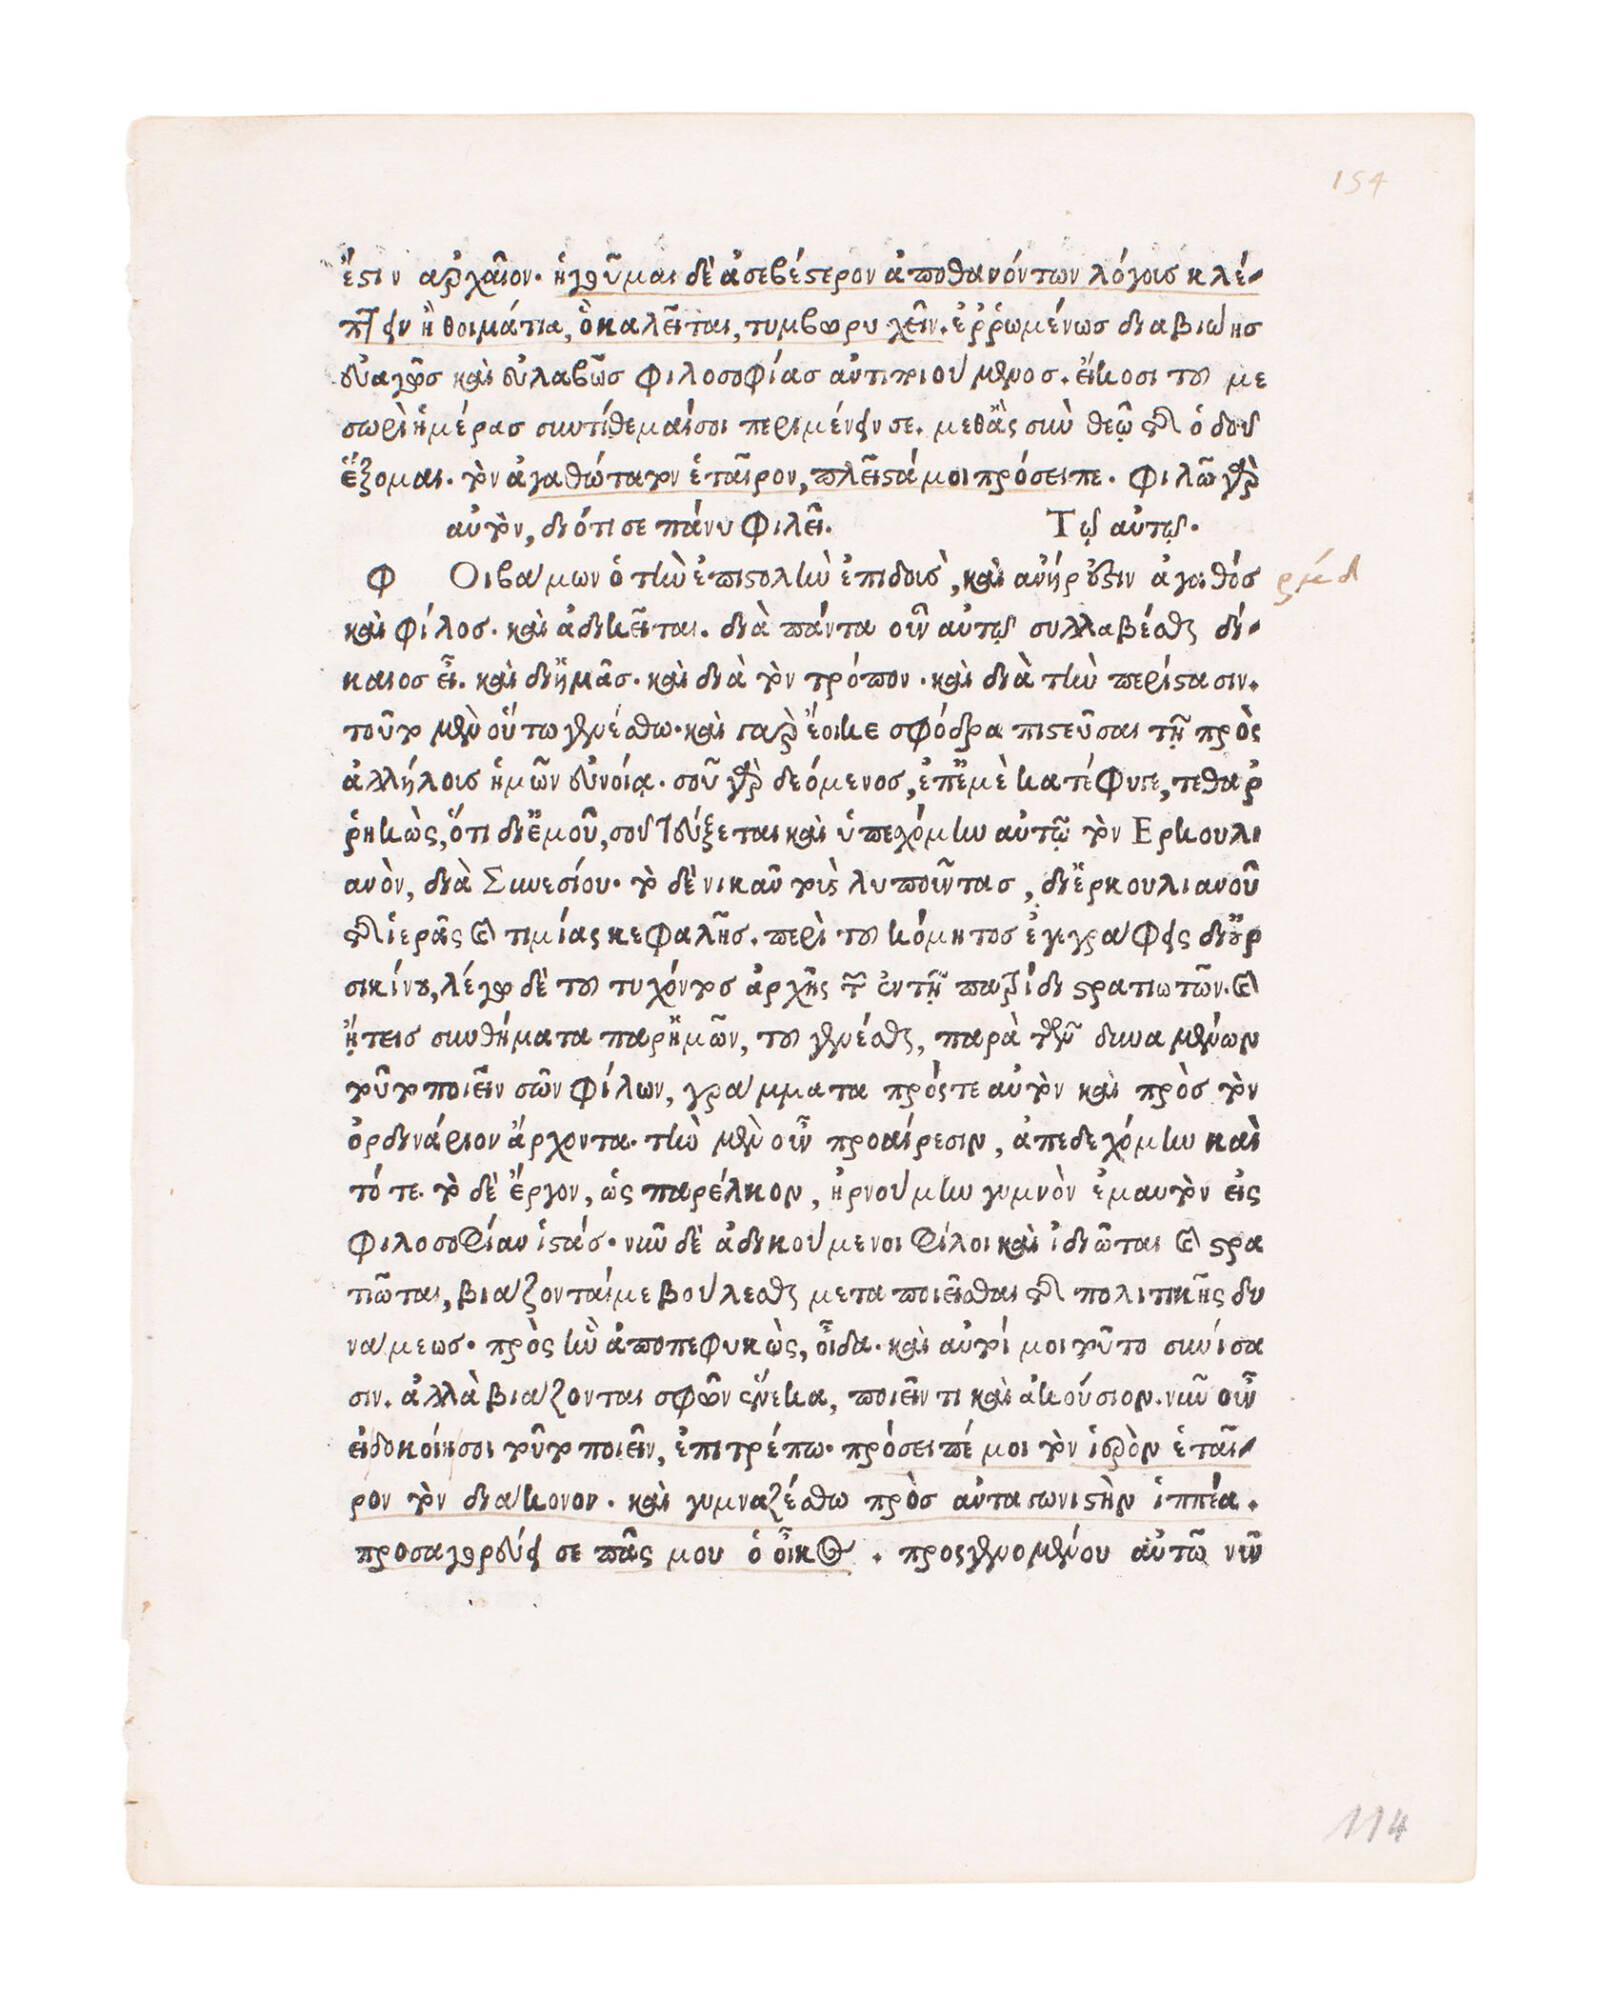 154
ἐστιν ἀρχαῖον· ἡγοῦμαι δὲ ἀσεβέστερον ἀποθανόντων λόγοις κλέ-
πτειν ἢ θοιμάτια, ὃ καλεῖται, τυμβωρυχεῖν. ἐρρωμένως διαβιώης
εὐαγῶς καὶ εὐλαβῶς φιλοσοφίας ἀντιποιούμενος. εἴκοσι τοῦ με
σωρὶ ἡμέρας συντίθεμαί σοι περιμένειν σε. μεθ' ἃς σὺν θεῷ τῆς ὁδοῦ
ἕξομαι. τὸν ἀγαθώτατον ἑταῖρον, πλεῖστά μοι πρόσειπε. φιλῶ γὰρ
αὐτὸν, διότι σε πάνυ φιλεῖ. Τῷ αὐτῷ.
Φ Οιβάμων ὁ τὴν ἐπιστολὴν ἐπιδοὺς, καὶ ἀνήρ ἐστιν ἀγαθός ρμδ
καὶ φίλος. καὶ ἀδικεῖται. διὰ πάντα οὖν αὐτῷ συλλαβέσθαι δί-
καιος εἶ. καὶ δι' ἡμᾶς. καὶ διὰ τὸν τρόπον. καὶ διὰ τὴν περίστασιν.
τοῦτο μὲν οὕτω γενέσθω. καὶ γὰρ ἔοικε σφόδρα πιστεῦσαι τῇ πρὸς
ἀλλήλοις ἡμῶν εὐνοίᾳ. σοῦ γὰρ δεόμενος, ἐπ' ἐμὲ κατέφυγε, τεθαρ
ρηκὼς, ὅτι δι' ἐμοῦ, σοῦ τεύξεται καὶ ὑπεσχόμην αὐτῷ τὸν Ερκουλι
ανὸν, διὰ Συνεσίου. τὸ δὲ νικᾶν τοὺς λυποῦντας, δι' ἑρκουλιανοῦ
τῆς ἱερᾶς καὶ τιμίας κεφαλῆς. περὶ τοῦ κόμητος ἐγεγράφεις δι' οὐρ
σικίνου, λέγω δὲ τοῦ τυχόντος ἀρχῆς τῶν ἐν τῇ πατρίδι στρατιωτῶν. καὶ
ᾔτεις συνθήματα παρ' ἡμῶν, τοῦ γενέσθαι, παρὰ τῶν δυναμένων
τοῦτο ποιεῖν σῶν φίλων, γράμματα πρός τε αὐτὸν καὶ πρὸς τὸν
ὀρδινάριον ἄρχοντα. τὴν μὲν οὖν προαίρεσιν, ἀπεδεχόμην καὶ
τότε. τὸ δὲ ἔργον, ὡς παρέλκον, ἠρνούμην γυμνὸν ἐμαυτὸν εἰς
φιλοσοφίαν ἱστάς. νῦν δὲ ἀδικούμενοι φίλοι καὶ ἰδιῶται καὶ στρα
τιῶται, βιάζονταί με βούλεσθαι μεταποιεῖσθαι τῆς πολιτικῆς δυ
νάμεως. πρὸς ἣν ἀποπεφυκὼς, οἶδα. καὶ αὐτοί μοι τοῦτο συνίσα
σιν. ἀλλὰ βιάζονται σφῶν ἕνεκα, ποιεῖν τι καὶ ἀκούσιον. νῦν οὖν
εἰ δοκοίη σοι τοῦτο ποιεῖν, ἐπιτρέπω. πρόσειπέ μοι τὸν ἱερὸν ἑταῖ-
ρον τὸν διάκονον. καὶ γυμναζέσθω πρὸς ἀνταγωνιστὴν ἱππέα.
προσαγορεύει σε πᾶς μου ὁ οἶκος. προσγενομένου αὐτῷ νῦν
114